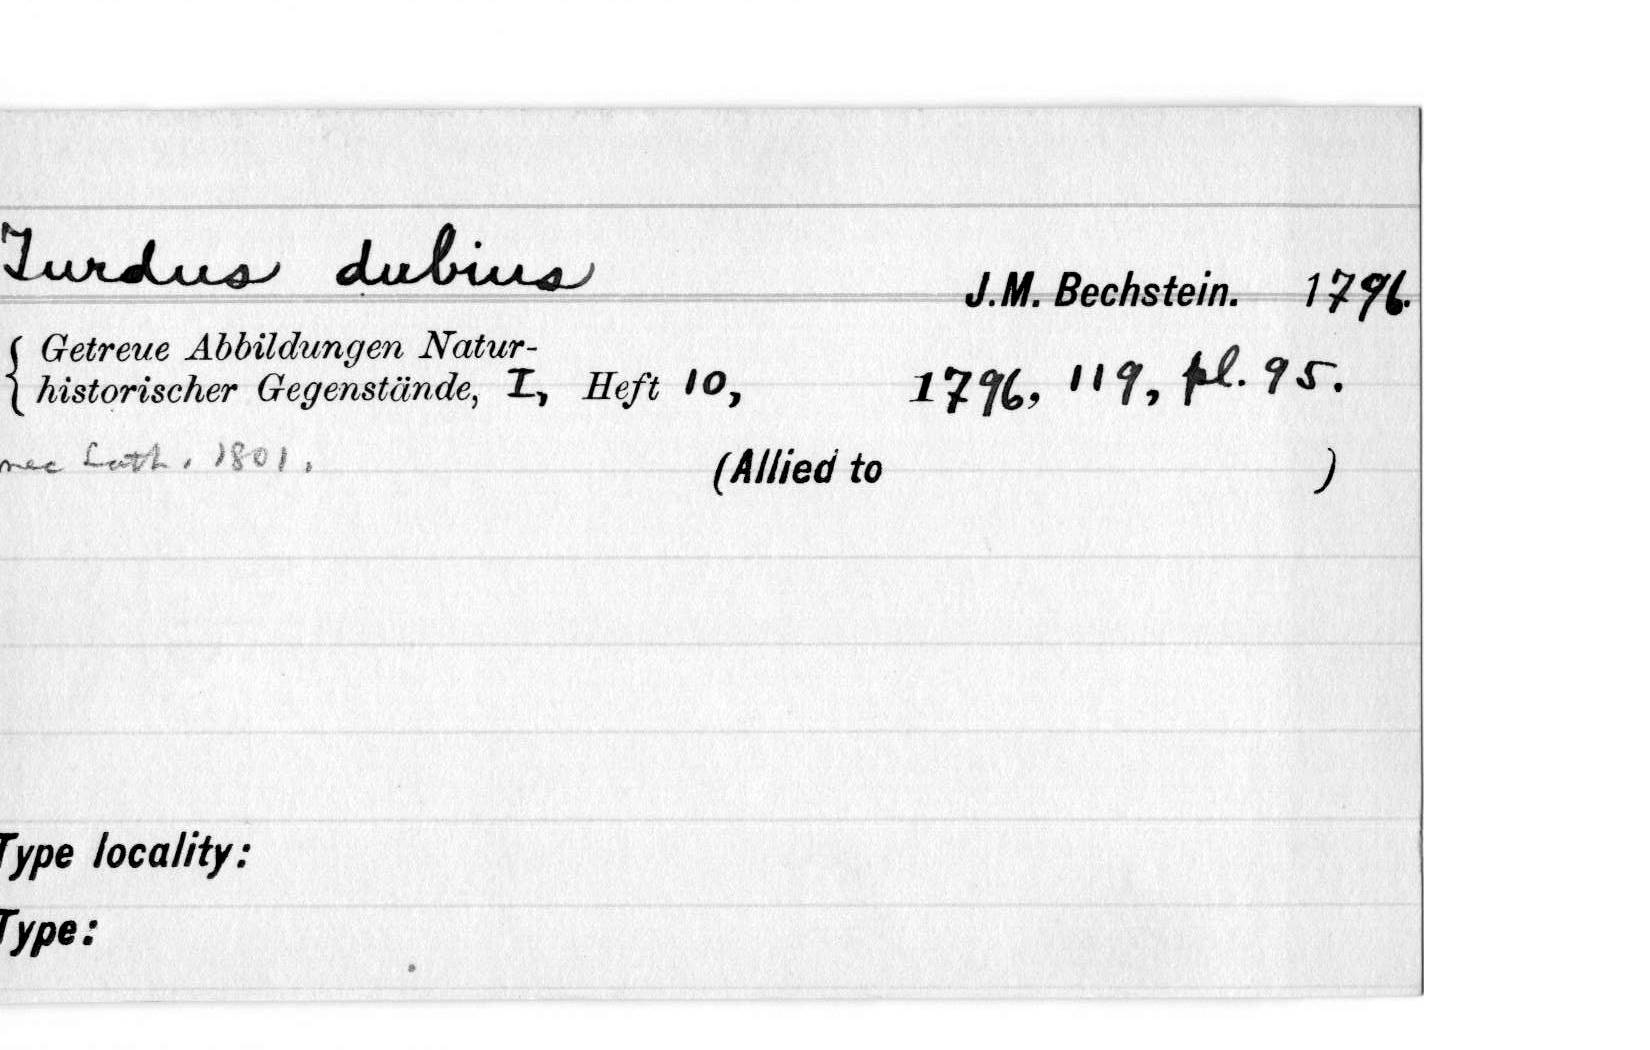 Turdus dubius J.M. Bechstein. 1796.
Getreue Abbildungen Natur-
historischer Gegenstände, I, Heft 10, 1796, 119, pl. 95.
nec Lath. 1801. (Allied to )
Type locality:
Type: